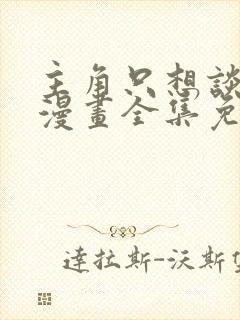 主角只想談
漫畫全集免
達拉斯-沃斯堡